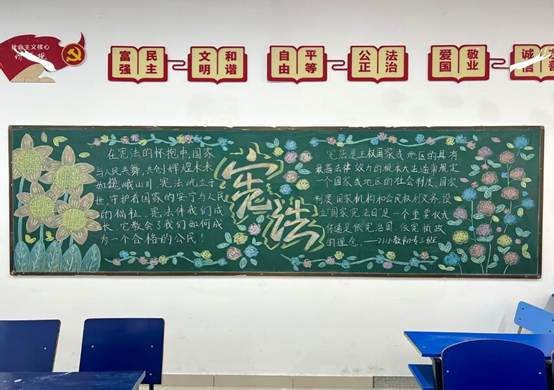 社会主义核心
富强 民主
文明 和谐
自由 平等
公正 法治
爱国 敬业
诚信
在宪法的怀抱中,国家
与人民共舞,共创辉煌未来
如巍峨山川 宪法屹立千
世,守护着国家的安宁与人民
的福祉。宪法伴我们成
长,它教会了我们如何成
为一个合格的公民
宪法
宪法是主权国家或地区的具有
最高法律效力的根本大法通常规定
一个国家或地区的社会制度、国家
制度国家机构和公民权利义务,设
立国家宪法日是一个重要仪式
传递是依宪治国、依宪执政
的理念。